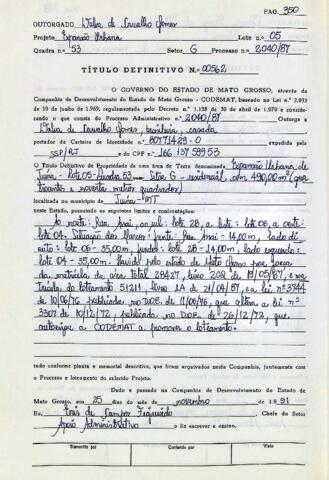 PAG. 350
OUTORGADO Walva de Carvalho Gomes
Projeto Expansão Urbana Lote n.o 05
Quadra n.o 53 Setor G Processo n.o 2040/87
TÍTULO DEFINITIVO N.o 00562
O GOVERNO DO ESTADO DE MATO GROSSO, através da
Companhia de Desenvolvimento do Estado de Mato Grosso - CODEMAT, baseado na Lei n.o 2.923
de 10 de junho de 1969, regulamentada pelo Decreto n.o 1.138 de 30 de abril de 1970 e considerando
o que consta do Processo Administrativo n.o 2040/87 Outorga a
Walva de Carvalho Gomes, brasileira, casada
portador da Carteira de Identidade n.o 80771429-0 expedida pela
SSP/RJ e do CPF n.o 166 137 593 53
o Título Definitivo de Propriedade de uma área de Terra denominada Expansão Urbana de
Juína - lote 05 - Quadra 53 - Setor G - residencial, com 490,00 m² (qua
trocentos e noventa metros quadrados)
localizado no município de Juína - MT
neste Estado, possuindo os seguintes limites e confrontações:
Ao norte: Rua, ao sul: lote 28, a leste: lote 06, a oeste:
lote 04. Situação dos Marcos: frente: Rua - 14,00m, lado di
reito: lote 06 - 35,00m, fundos: lote 28 - 14,00m, lado esquerdo:
lote 04 - 35,00m. Havido pelo estado de Mato Grosso por força
da matrícula da área total 28427, livro 208 de 19/05/87, e ma
trícula do loteamento 51211 livro 1A de 21/04/87, e a lei nº 3744
de 10/06/76 publicada no D.O.E. de 11/06/76, que altera a lei nº
3307 de 18/12/72, publicada no D.O.E. de 26/12/72, que
autoriza a CODEMAT a promover o loteamento.
tudo conforme planta e memorial descritivo, que ficam arquivados nesta Companhia, juntamente com
o Processo e loteamento do referido Projeto.
Dado e passado na Companhia de Desenvolvimento do Estado de
Mato Grosso, aos 25 dias do mês de novembro de 1991
Eu, Enis de Campos Figueiredo Chefe do Setor
Apoio Administrativo o fiz escrever e assino.
Transcrito por Conferido por Visto